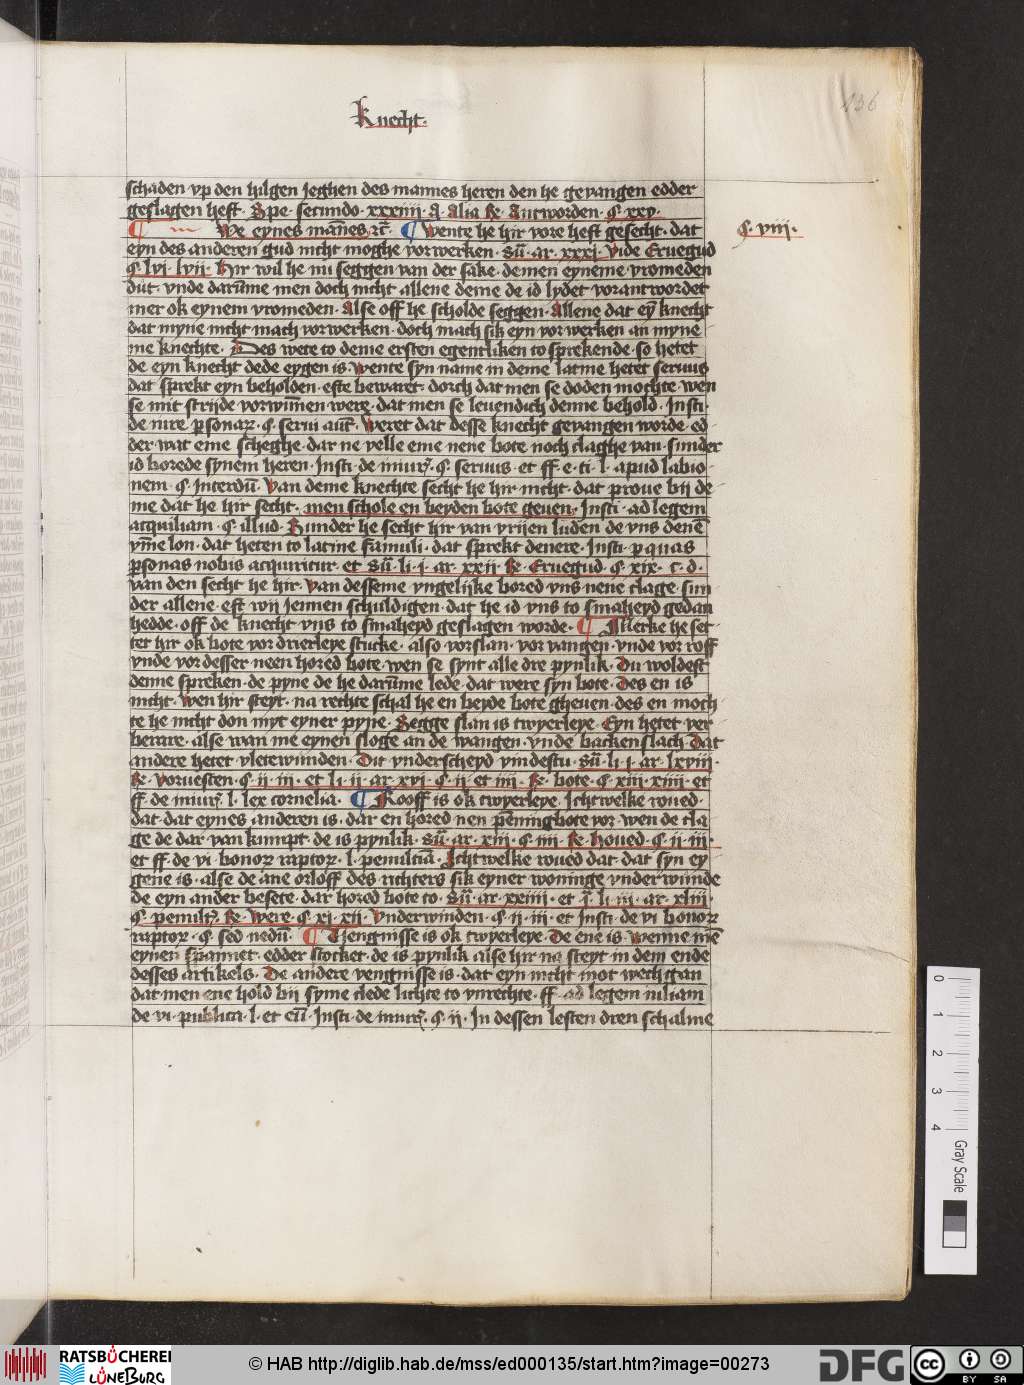 136
Knecht·
schaden vp den hilgen jeghen des mannes heren den he gevangen edder
geslagen heft· Spe· secundo· xxxiiii· A· Alia R· Antworden· §· xxv·
¶ We eynes mānes rc̄· ¶ Wente he hir vore heft gesecht· dat
§· viii·
eyn des anderen gud nicht moghe vorwerken· Sū· ar· xxxi· Vide Eruegud
§· lvi· lvii· Hir wil he nu seggen van der sake· demen eyneme vromeden
dut· vnde darūme men doch nicht allene deme de id lydet vorantwordet
mer ok eynem vromeden· Alse off he scholde seggen· Allene dat eȳ knecht
dat myne nicht mach vorwerken· doch mach sik eyn vorwerken an myne
me knechte· Des wete to deme ersten egentliken to sprekende· so hetet
de eyn knecht dede eygen is· Wente syn name in deme latine hetet servus
dat sprekt eyn beholden· efte bewaret· dorch dat men se doden mochte wen
se mit strijde vorwūnen were· dat men se leuendich denne behold· Insti·
de iure ꝑsonaꝝ· §· serui aut̄· Weret dat desse knecht gevangen worde· ed
der wat eme scheghe· dar ne velle eme nene bote noch claghe van· sunder
id borede synem heren· Insti· de iniur̄· §· servus· et ff· e· ti· l· apud labio
nem· §· interdū· Van deme knechte secht he hir nicht· dat proue bij de
me dat he hir secht· men schole en beyden bote geuen· Insti· ad legem
acquiliam· §· illud· Sunder he secht hir van vrijen luden de vns denē
vm̄e lon· dat heten to latine famuli· dat sprekt denere· Insti· ꝑ quas
ꝑsonas nobis acquiritur· et Sū· li· j· ar· xxij R· Eruegud· §· xix· c· d·
van den secht he hir· Van desseme yngelijke bored vns nene clage· sun
der allene· eft wij jennen schuldigen· dat he id vns to smaheyd gedan
hedde· off de knecht vns to smaheyd geslagen worde· ¶ Merke he set
tet hir ok bote vor drierleye stucke· also vorslan· vor vangen· vnde vor roff
vnde vor desser neen hored bote· wen se synt alle dre pynlik· Du woldest
denne spreken· de pyne de he darūme lede· dat were syn bote· Des en is
nicht· Wen hir steyt· na rechte schal he en beyde bote gheuen· des en moch
te he nicht don myt eyner pyne· Segge slan is twyerleye· Eyn hetet ver
berare· alse wan me eynen sloge an de wangen· vnde backenslach Dat
andere hetet vletewunden· Dit vnderscheyd vindestu· Sū· li· j· ar· lxviii·
R· Vorvesten· §· ii· iii· et li· ii· ar· xvi· §· ii· et iiii· R· bote· §· xiii· xiiii· et
ff· de iniur̄· l· lex cornelia· ¶ Rooff is ok twyerleye· Ichtwelke roued·
dat dat eynes anderen is· dar en hored nen pēningbote vor· wen de cla
ge de dar van kumpt· de is pynlik· Sū· ar· xiii· §· iiii· R· houed· §· ii· iii·
et ff· de vi· bonoꝝ raptoꝝ· l· penultiā· Ichtwelke roued dat· dat syn ey
gene is· alse de ane orloff des richters sik eyner woninge vnderwunde
de eyn ander besete· dar hored bote to· Sū· ar· xxiiii· et j̄· li· iii· ar· xliii·
§· penult̄· R· Were· §· xi· xii· Vnderwinden· §· ii· iii· et Insti· de vi· bonoꝝ
raptoꝝ· §· sed nedū· ¶ Vengnisse is ok twyerleye· De ene is· Wenne mē
eynen spannet· edder stocket· de is pynlik alse hir na steyt in dem ende
desses artikels· De andere vengnisse is· dat eyn nicht mot wech gan
dat men ene hold bij syme clede lichte to vnrechte· ff· ad legem iuliam
de vi· publica· l· et cū· Insti· de iniur̄· §· ii· In dessen lesten dren schalme
0 1 2 3 4
Gray Scale
RATSBÜCHEREI LÜNEBURG
© HAB http://diglib.hab.de/mss/ed000135/start.htm?image=00273
DFG
cc BY SA